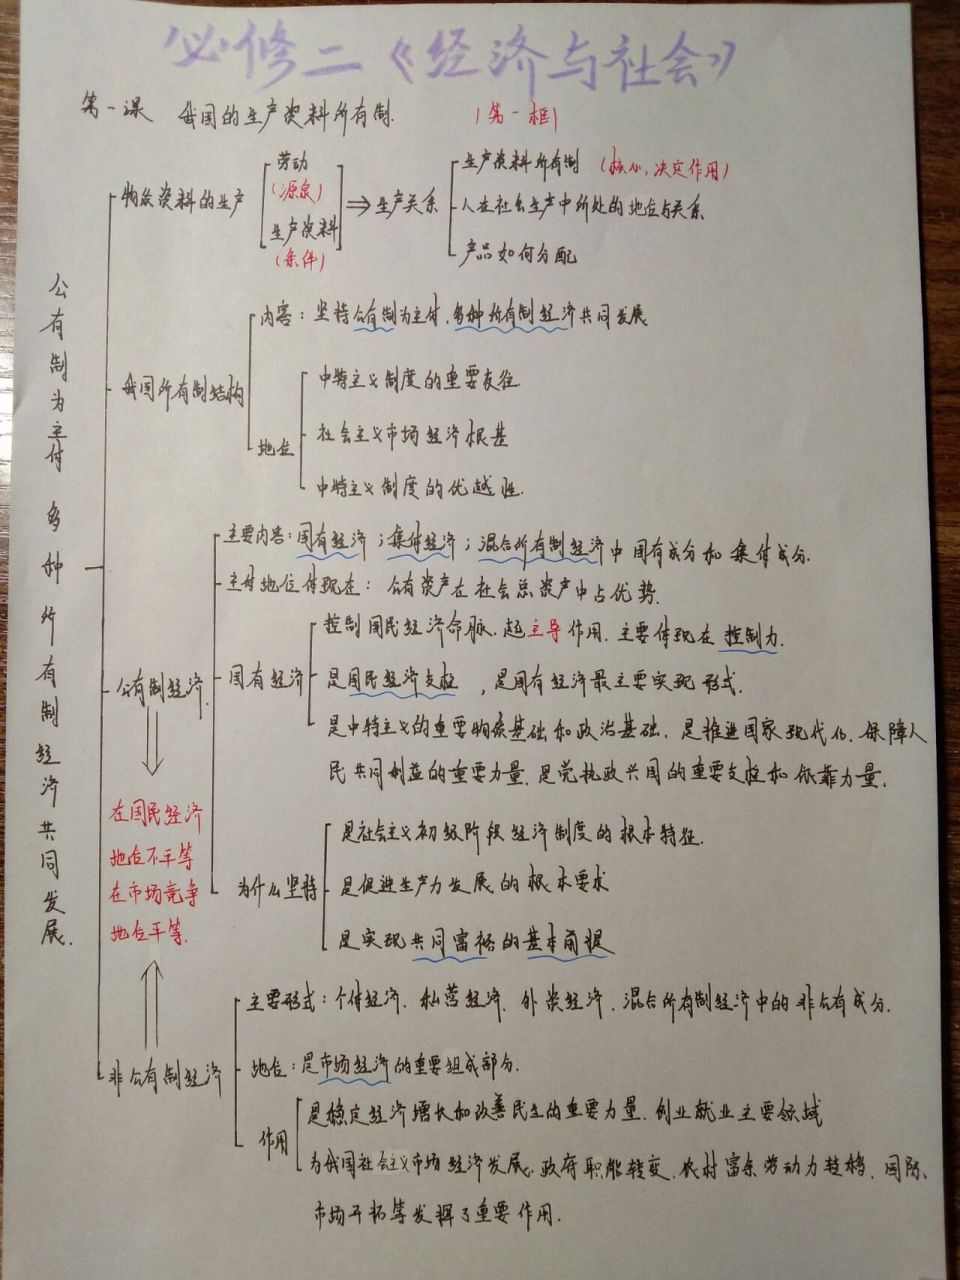 必修二《经济与社会》
第一课 我国的生产资料所有制. (第一框)
公有制为主体 多种所有制经济共同发展.
物质资料的生产
劳动
(源泉)
生产资料
(条件)
⇒生产关系
生产资料所有制 (核心,决定作用)
人在社会生产中所处的地位与关系
产品如何分配
我国所有制结构
内容:坚持公有制为主体.多种所有制经济共同发展
地位
中特主义制度的重要支柱
社会主义市场经济根基
中特主义制度的优越性.
公有制经济.
主要内容:国有经济;集体经济;混合所有制经济中国有成分和集体成分.
主体地位体现在:公有资产在社会总资产中占优势.
国有经济
控制国民经济命脉.起主导作用.主要体现在控制力.
是国民经济支柱,是国有经济最主要实现形式.
是中特主义的重要物质基础和政治基础.是推进国家现代化.保障人
民共同利益的重要力量.是党执政兴国的重要支柱和依靠力量.
为什么坚持
是社会主义初级阶段经济制度的根本特征.
是促进生产力发展的根本要求
是实现共同富裕的基本前提
在国民经济
地位不平等
在市场竞争
地位平等.
非公有制经济
主要形式:个体经济.私营经济.外资经济.混合所有制经济中的非公有成分.
地位:是市场经济的重要组成部分.
作用
是稳定经济增长和改善民生的重要力量.创业就业主要领域
为我国社会主义市场经济发展.政府职能转变.农村富余劳动力转移.国际、
市场开拓等发挥了重要作用.